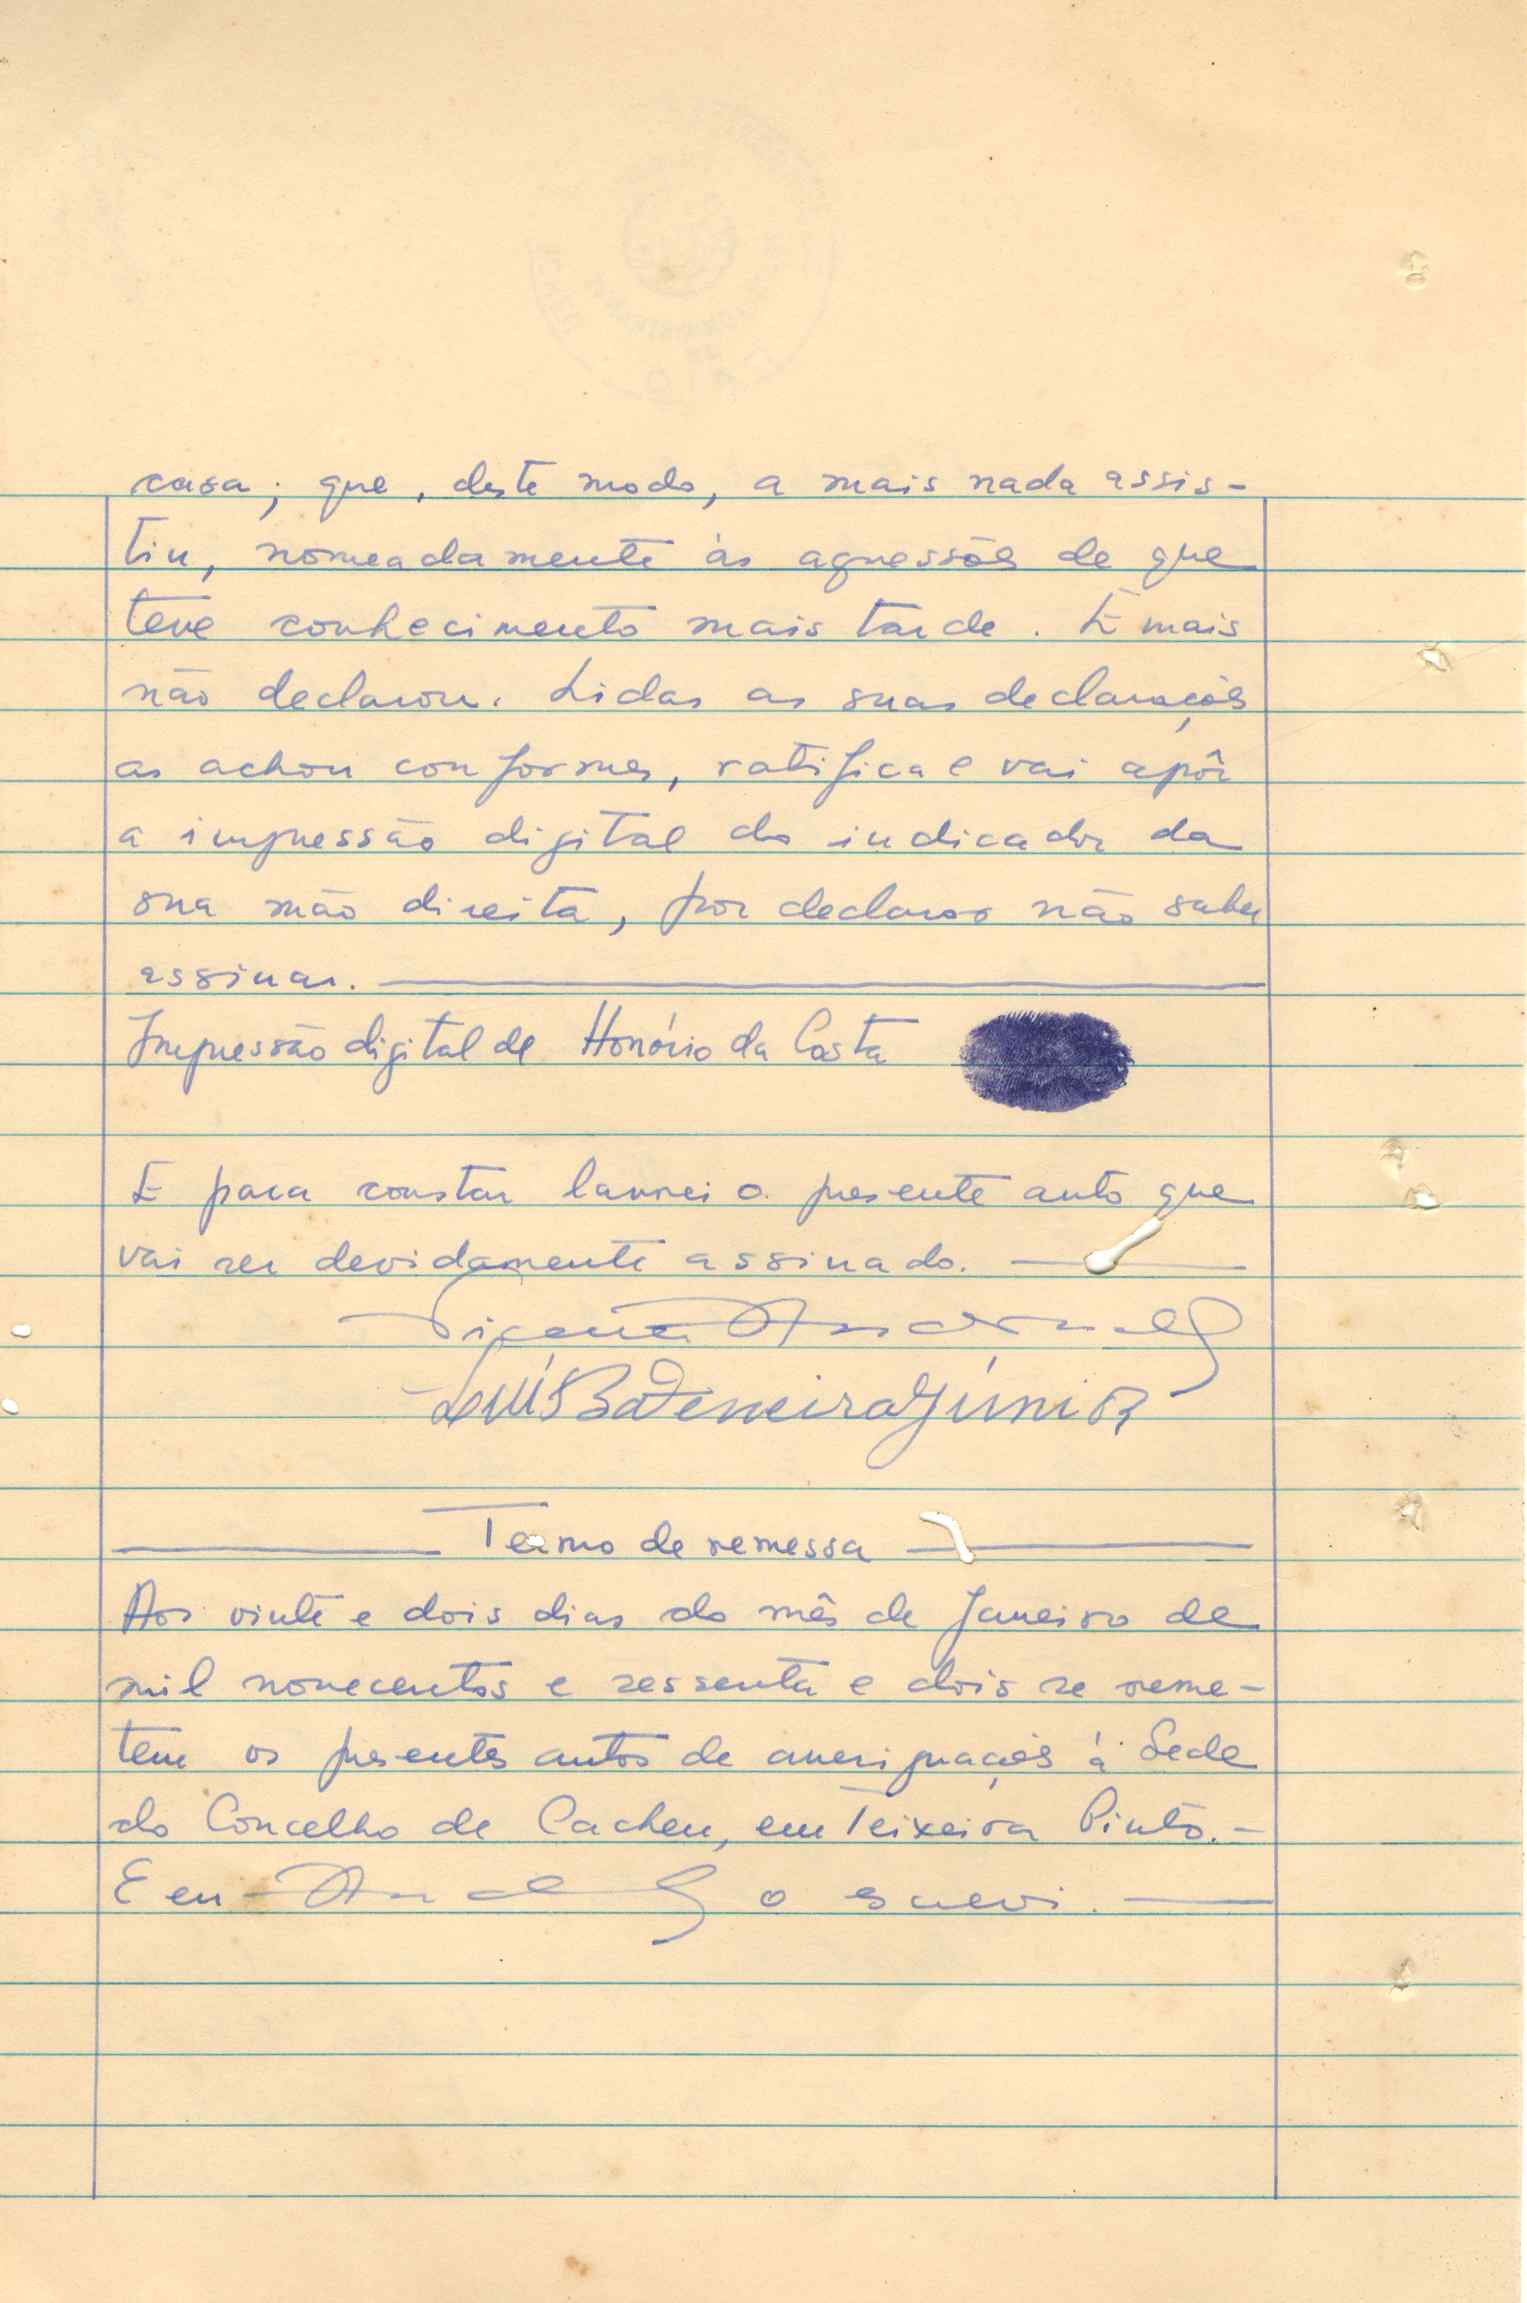 casa; que, deste modo, a mais nada assis-
tiu, nomeadamente às agressões de que
teve conhecimento mais tarde. E mais
não declarou. Lidas as suas declarações
as achou conformes, ratifica e vai apôr
a impressão digital do indicador da
sua mão direita, por declarar não saber
assinar.
Impressão digital de Honório da Costa
E para constar lavrei o presente auto que
vai ser devidamente assinado.
Luís Júnior
Termo de remessa
Aos vinte e dois dias do mês de Janeiro de
mil novecentos e sessenta e dois se reme-
tem os presentes autos de averiguações à Sede
do Concelho de Cacheu, em Teixeira Pinto.-
E eu o escrevi.